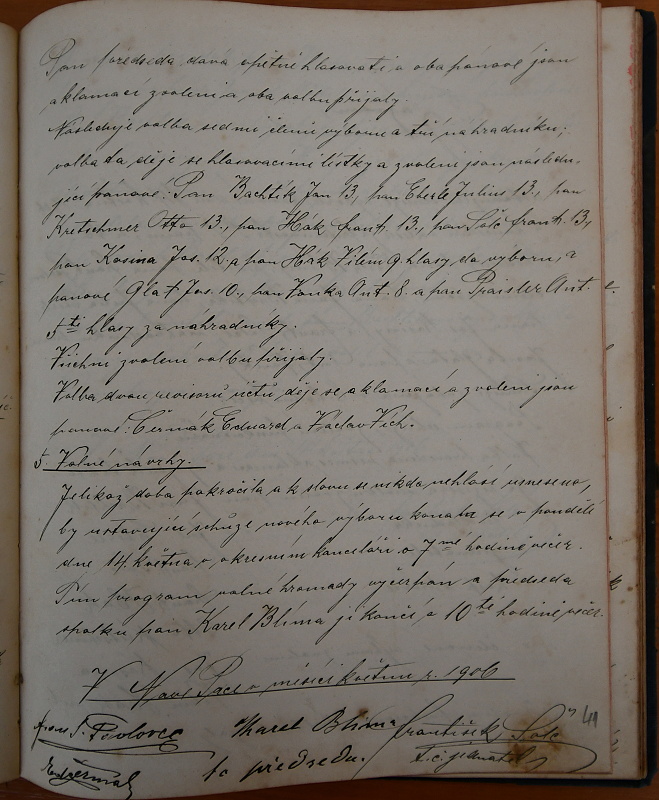 Pan předseda dává opětně hlasovati a oba pánové jsou
aklamací zvoleni a oba volbu přijaly.
Následuje volba sedmi členů výboru a tří náhradníků;
volba ta děje se hlasovacími lístky a zvoleni jsou následu-
jící pánové: Pan Bachtík Jan 13, pan Eberle Julius 13., pan
Kretschmer Otto 13., pan Hák Frant. 13., pan Šolc Frant. 13.,
pan Kosina Jos. 12. a pan Hák Vilém 9 hlasy do výboru, a
panové Jos. 10., pan Vonka Ant. 8. a pan Praisler Ant.
5ti hlasy za náhradníky.
Všichni zvolení volbu přijaly.
Volba dvou revisorů účtů děje se aklamací a zvoleni jsou
panové: Čermák Eduard a Václav Vich.
5 Volné návrhy.
Jelikož doba pokročila a k slovu se nikdo nehlásí usneseno,
by ustavující schůze nového výboru konala se v pondělí
dne 14. května v okresním kanceláři o 7mé hodině večer.
Tím program valné hromady vyčerpán a předseda
spolku pan Karel Blíma ji končí o 10té hodině večer.
V Nové Pace v měsíci květnu r. 1906
Karel Blíma František Šolc
to předseda. t. č. jednatel
Ed. Čermák
41